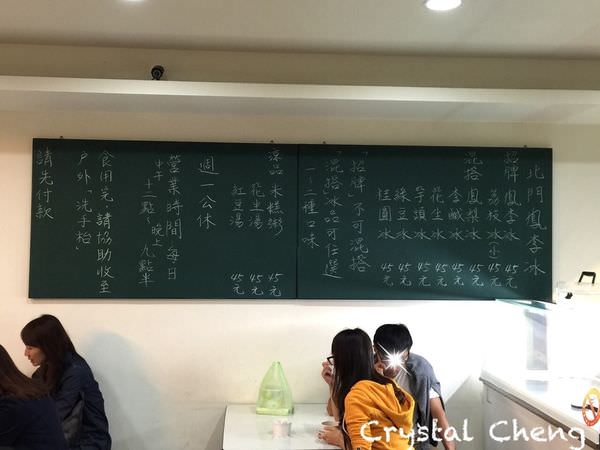 北門鳳李冰
招牌 鳳李冰 45元
荔枝冰(小) 45元
混搭 鳳梨冰 45元
李鹹冰 45元
花生冰 45元
芋頭冰 45元
綠豆冰 45元
桂圓冰 45元
「招牌」不可混搭
「混搭」冰品可任選
一~三種口味
涼品 米糕粥 45元
花生湯 45元
紅豆湯 45元
週一公休
營業時間:每日
中午十二點~晚上九點半
食用完,請協助收至
戶外「洗手枱」
請先付款
Crystal Cheng